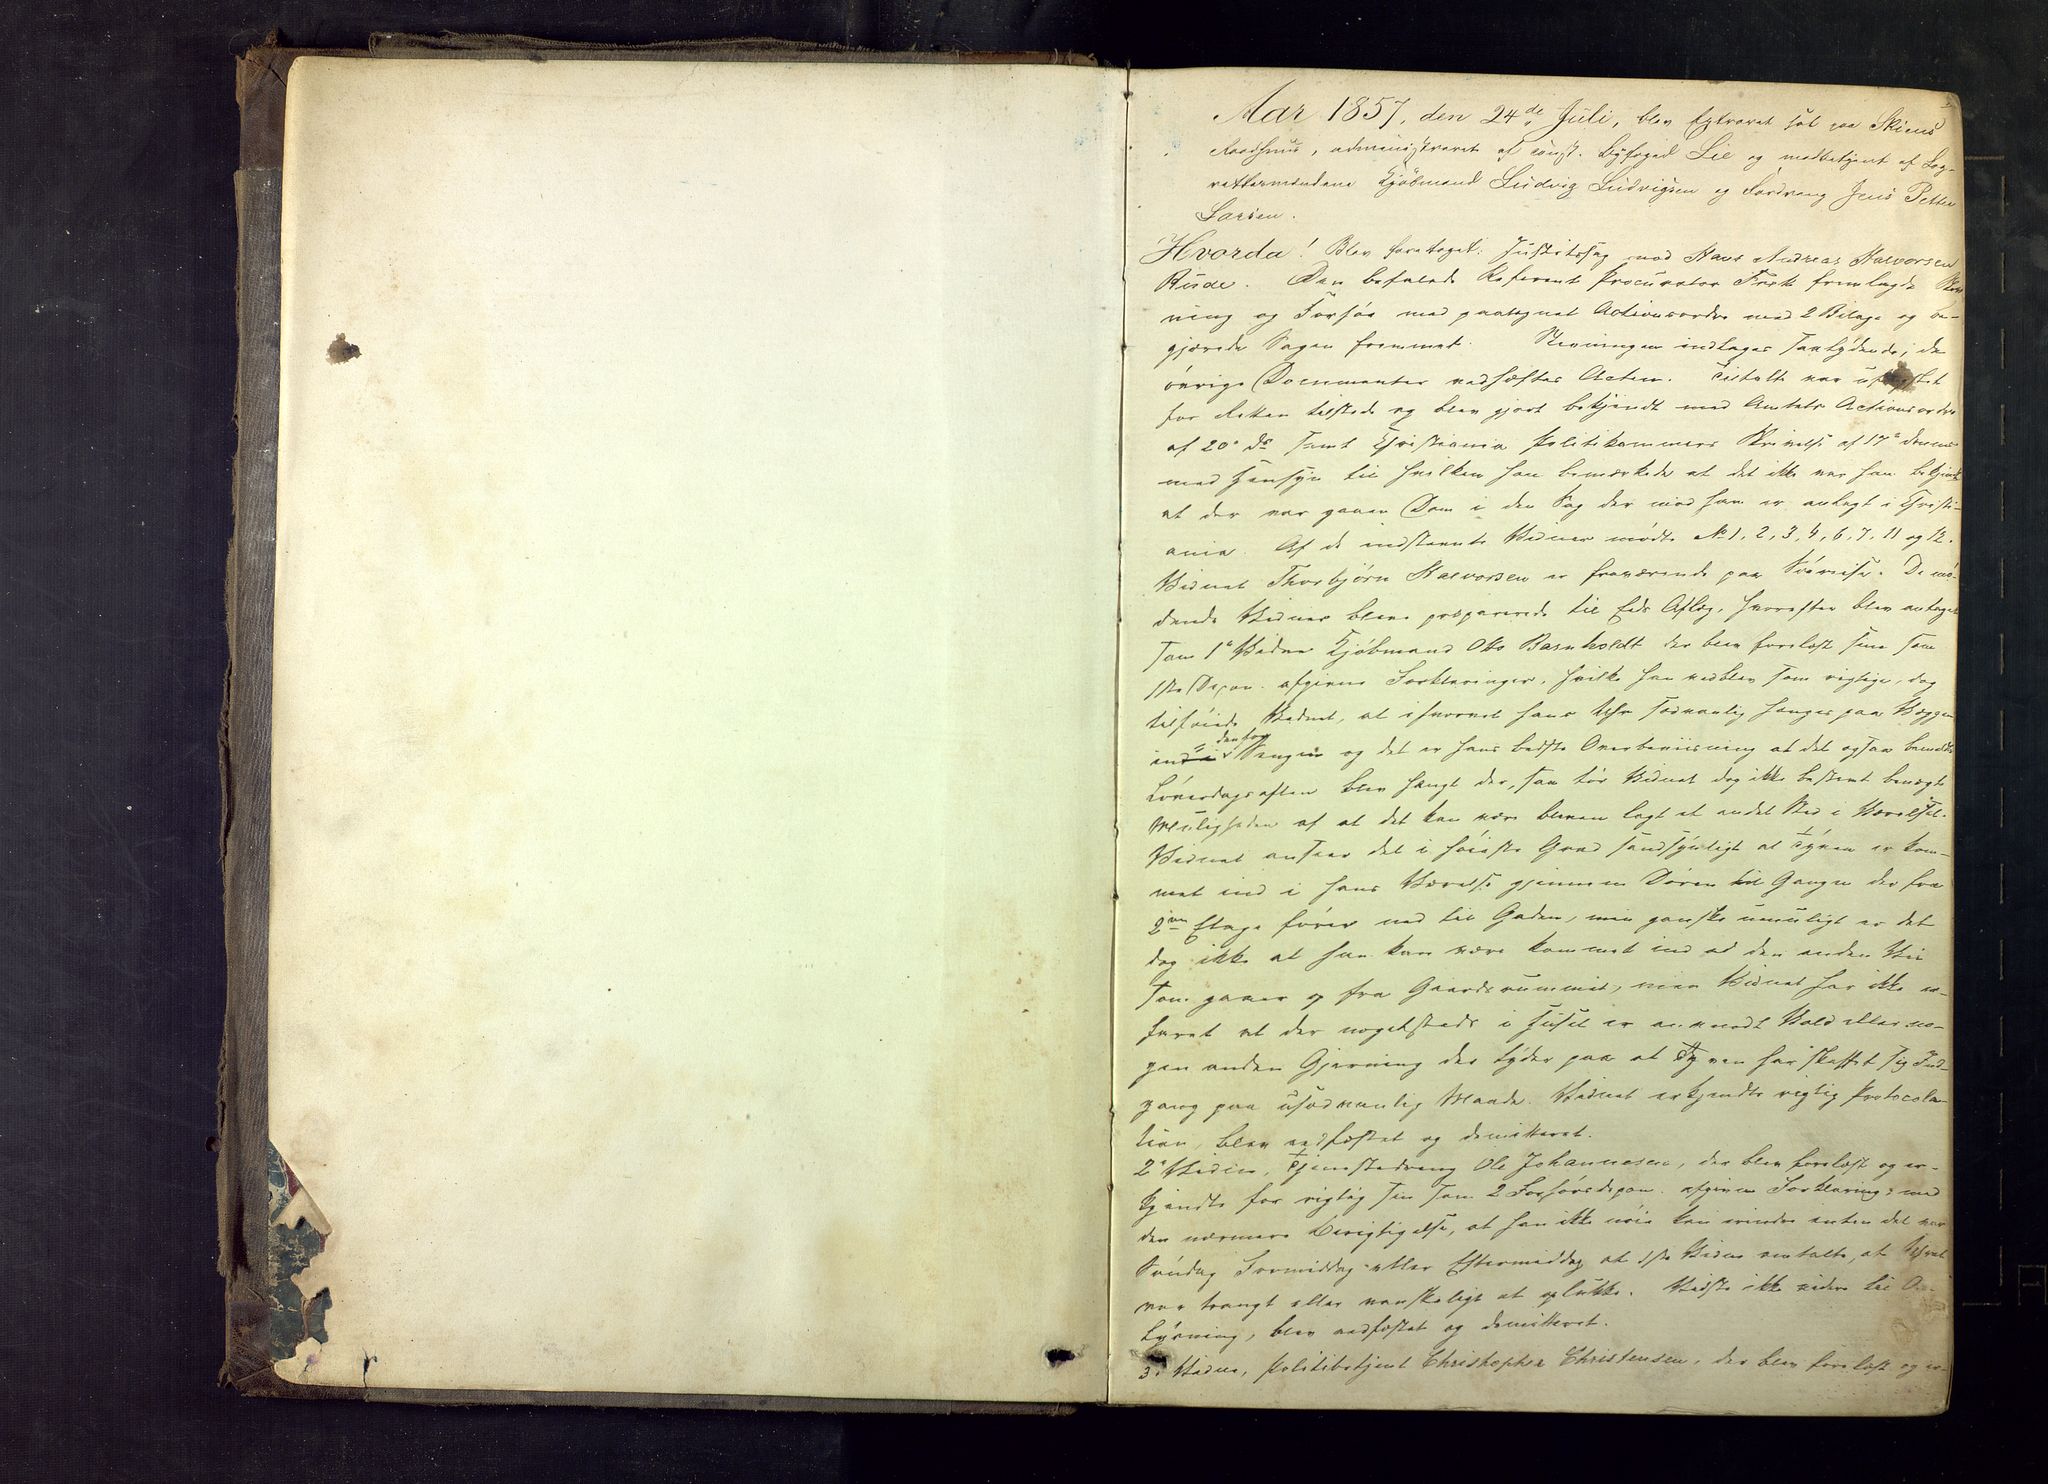 Aar 1857, den 24de Juli, blev Extraret sat paa Skiens
Raadhuus, administreret af const. Byfoged Lie og medbetjent af Lag-
rettesmændene Kjøbmand Ludvig Ludvigsen og Fardreng Jens Petter
Larsen.
Hvorda! Blev foretaget: Justitssag mod Hans Andreas Halvorsen
Rúde. Den befalede Referent Procurator Fisk fremlagde Stev-
ning og Forhør med paategnet Actionsordre med 2 Bilage og be-
gjærede Sagen fremmet. Stevningen indtages saalydende; de
øvrige Documenter vedhæftes Acten. Tiltalte var ufængslet
for Retten tilstede og blev gjort bekjendt med Amtets Actionsordre
af 20de ds samt Christiania Politikammers Skrivelse af 17de dennes
med Hensyn til hvilken han bemærkede at det ikke var ham bekjendt
at der var gaaen Dom i den Sag der mod ham er anlagt i Christi-
ania. Af de indstevnte Vidner mødte No 1, 2, 3, 4, 6, 7, 11 og 12.
Vidnet Thorbjørn Halvorsen er fraværende paa Søreise. De mø-
dende Vidner bleve præparerede til Eds Aflæg, hvorefter blev antaget
som 1ste Vidne Kjøbmand Otto Barnholdt der blev forelæst sine som
1ste Depon. afgivne Forklaringer, hvilke han vedblev som rigtige, dog
tilføiede Vidnet, at ihvorvel hans Uhr sædvanlig hænges paa Væggen
indenfor Sengen og det er hans bedste Overbeviisning at det ogsaa bemeldte
Løverdagsaften blev hængt der, saa tør Vidnet dog ikke bestemt benægte
Muligheden af at det kan være bleven lagt et andet Sted i Værelset.
Vidnet anseer det i høieste Grad sandsynligt at Tyven er kom-
met ind i hans Værelse gjennem Døren til Gangen der fra
2den Etage fører ned til Gaden, men ganske umuligt er det
dog ikke at han kan være kommet ind ad den anden Vei
som gaaer op fra Gaardsrummet, men Vidnet har ikke er-
faret at der nogetsteds i Huset er anvendt Vold eller no-
gen anden Gjerning der tyder paa at Tyven har skaffet sig Ind-
gang paa usædvanlig Maade. Vidnet erkjendte rigtig Protocola-
tion, blev edfæstet og demitteret.
2det Vidne, Tjenestedreng Ole Johannesen, der blev forelæst og er-
kjendte for rigtig sin som 2 Forhørsdepon. afgivne Forklaring, med
den nærmere Berigtigelse, at han ikke nøie kan erindre enten det var
Søndag Formiddag eller Eftermiddag at 1ste Vidne omtalte, at Uhret
var trangt eller vanskeligt at oplukke. Vidste ikke videre til Op-
lysning, blev edfæstet og demitteret.
3die Vidne, Politibetjent Christopher Christensen, der blev forelæst og er-